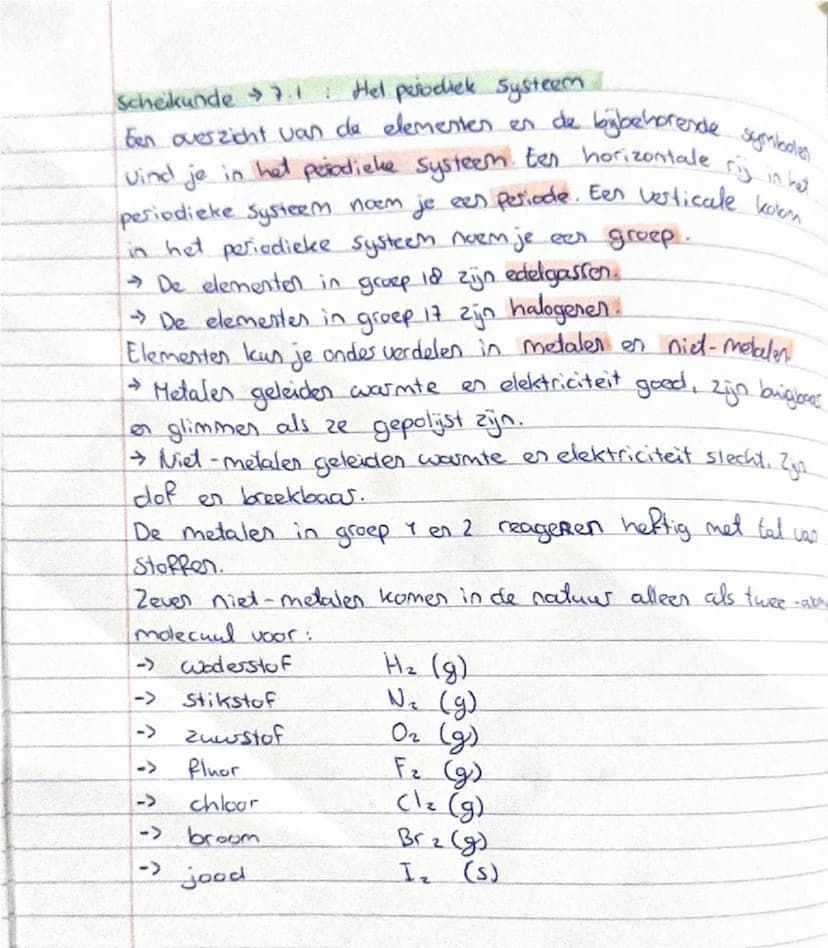 Scheikunde → 7.1 : Het periodiek systeem
Een overzicht van de elementen en de bijbehorende symbolen
vind je in het periodieke systeem. Een horizontale rij in het
periodieke systeem noem je een periode. Een verticale kolom
in het periodieke systeem noem je een groep.
→ De elementen in groep 18 zijn edelgassen.
→ De elementen in groep 17 zijn halogenen.
Elementen kun je onderverdelen in metalen en niet-metalen
→ Metalen geleiden warmte en elektriciteit goed, zijn buigbaar
en glimmen als ze gepolijst zijn.
→ Niet-metalen geleiden warmte en elektriciteit slecht, zijn
dof en breekbaar.
De metalen in groep 1 en 2 reageren heftig met tal van
stoffen.
Zeven niet-metalen komen in de natuur alleen als twee-atom
molecuul voor:
-> waterstof H₂ (g)
-> stikstof N₂ (g)
-> zuurstof O₂ (g)
-> fluor F₂ (g)
-> chloor Cl₂ (g)
-> broom Br₂ (g)
-> jood I₂ (s)